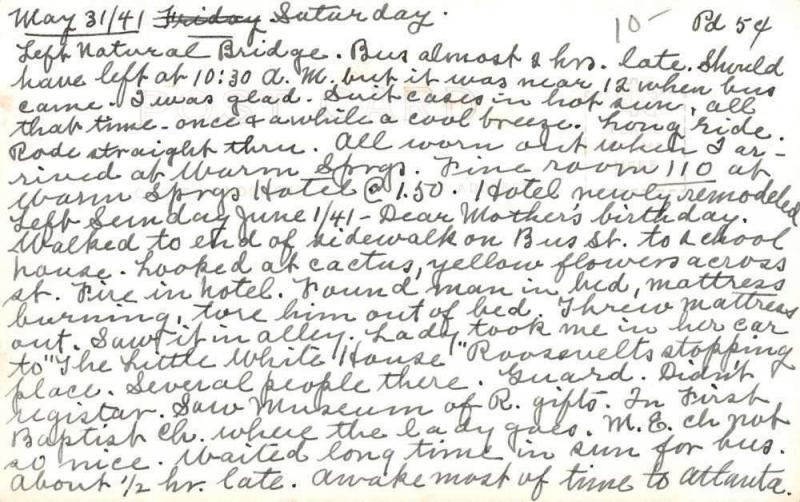 May 31/41 Friday Saturday. 10- Pd 5¢
Left Natural Bridge. Bus almost 2 hrs. late. Should
have left at 10:30 A. M. but it was near 12 when bus
came. I was glad. Suit cases in hot sun, all
that time - once & awhile a cool breeze. Long ride.
Rode straight thru. All worn out when I ar-
rived at Warm Sprgs. Fine room 110 at
Warm Sprgs Hotel @ 1.50. Hotel newly remodeled
Left Sunday June 1/41 - Dear Mother's birthday.
Walked to end of sidewalk on Bus St. to school
house. Looked at cactus, yellow flowers across
st. Fire in hotel. Found man in bed, mattress
burning, tore him out of bed. Threw mattress
out. Saw it in alley. Lady took me in her car
to "The Little White House" Roosevelts stopping
place. Several people there. Guard. Didn't
registar. Saw Museum of R. gifts. In First
Baptist Ch. where the lady goes. M. E. ch not
so nice. Waited long time in sun for bus.
About 1/2 hr. late. Awake most of time to Atlanta.